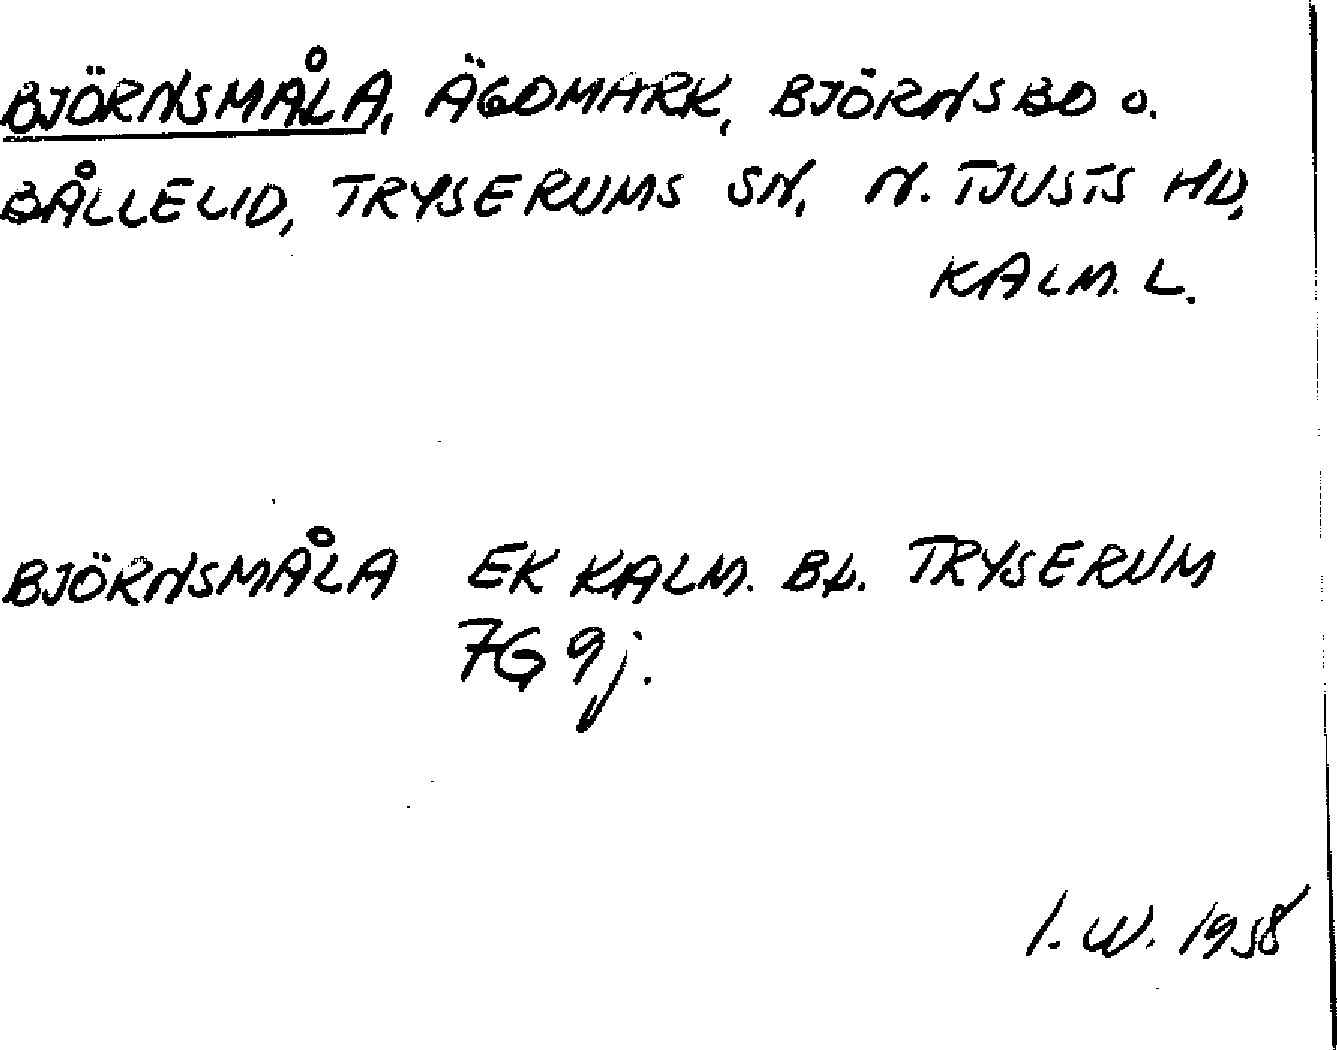 BJÖRNSMÅLA, ÄGOMARK, BJÖRNSBO o.
BÅLLELID, TRYSERUMS SN, N. TJUSTS HD,
KALM. L.
BJÖRNSMÅLA EK KALM. Bl. TRYSERUM
7G 9j.
I. W. 1958